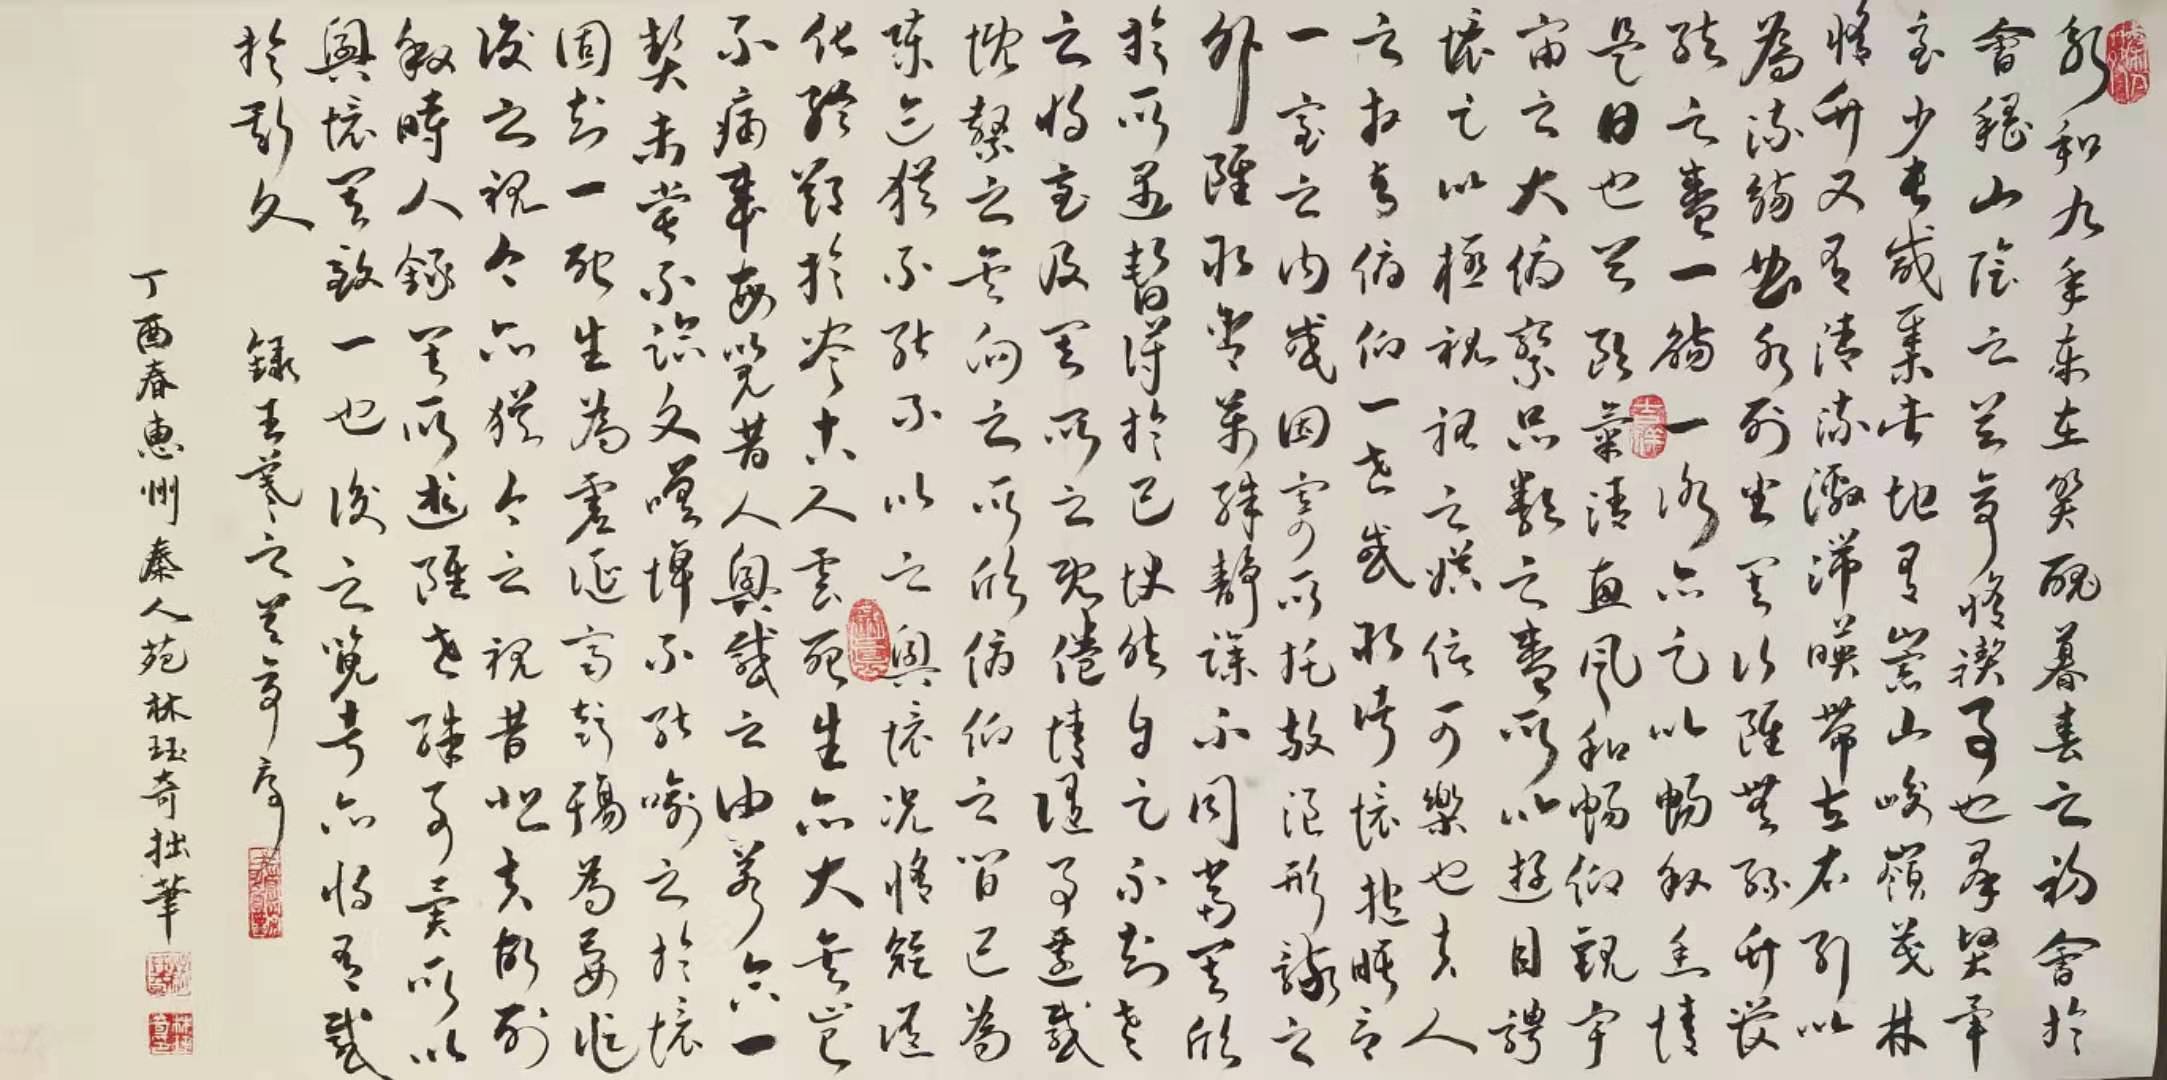 永和九年歲在癸醜暮春之初會於
會稽山陰之蘭亭修禊事也群賢畢
至少長咸集此地有崇山峻嶺茂林
修竹又有清流激湍映帶左右引以
為流觴曲水列坐其次雖無絲竹管
絃之盛一觴一詠亦足以暢敘幽情
是日也天朗氣清惠風和暢仰觀宇
宙之大俯察品類之盛所以遊目騁
懷足以極視聽之娛信可樂也夫人
之相與俯仰一世或取諸懷抱晤言
一室之內或因寄所托放浪形骸之
外雖取舍萬殊靜躁不同當其欣
於所遇暫得於己快然自足不知老
之將至及其所之既倦情隨事遷感
慨繫之矣向之所欣俯仰之間已為
陳跡猶不能不以之興懷況修短隨
化終期於盡古人雲死生亦大矣豈
不痛哉每覽昔人興感之由若合一
契未嘗不臨文嗟悼不能喻之於懷
固知一死生為虛誕齊彭殤為妄作
後之視今亦猶今之視昔悲夫故列
敘時人錄其所述雖世殊事異所以
興懷其致一也後之覽者亦將有感
於斯文
錄王羲之蘭亭序
丁酉春惠州秦人苑林珏奇拙筆